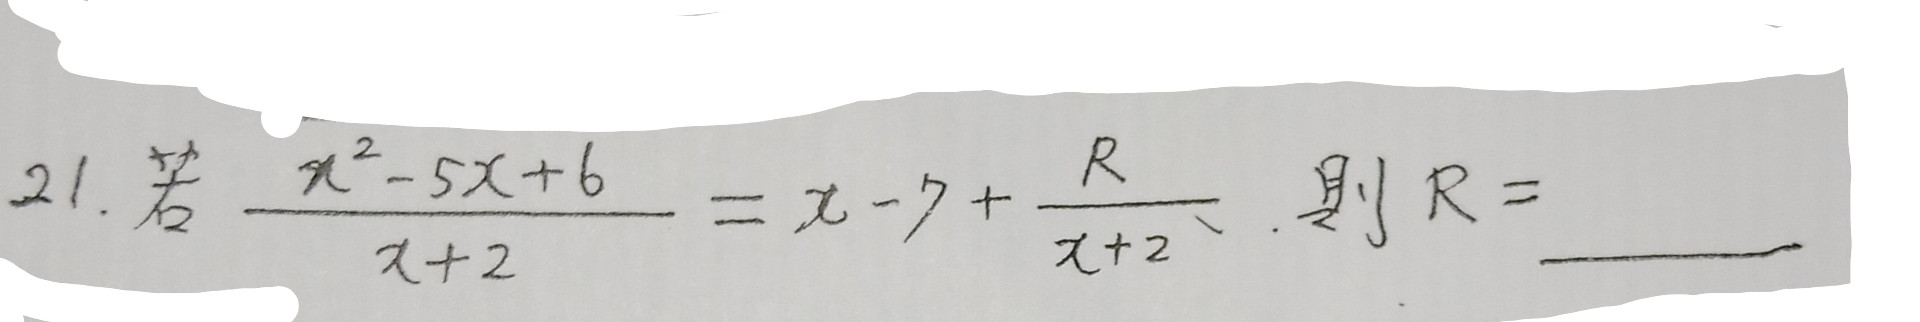 21. 若 \frac{x^2-5x+6}{x+2} = x-7+\frac{R}{x+2}. 则 R = ____